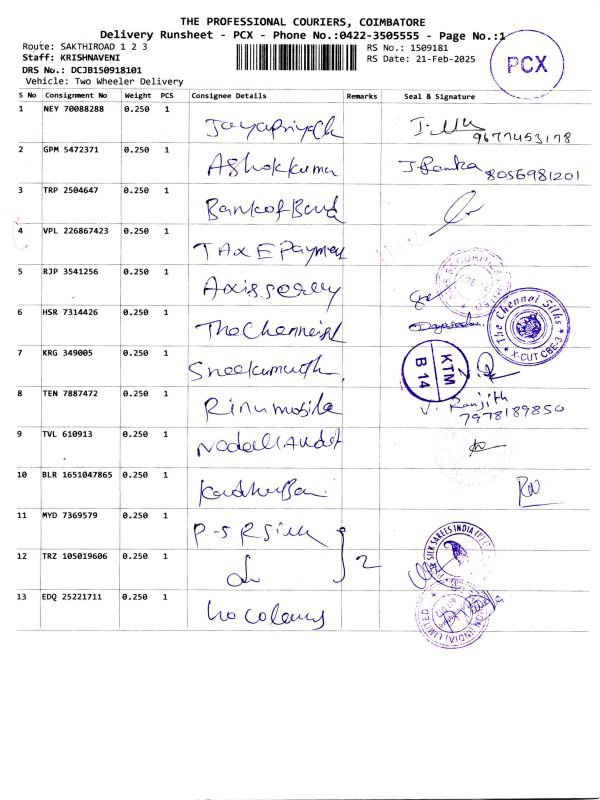 THE PROFESSIONAL COURIERS, COIMBATORE
Delivery Runsheet - PCX - Phone No.:0422-3505555 - Page No.:1
Route: SAKTHIROAD 1 2 3
Staff: KRISHNAVENI
DRS No.: DCJB150918101
Vehicle: Two Wheeler Delivery
RS No.: 1509181
RS Date: 21-Feb-2025
PCX
S No Consignment No Weight PCS Consignee Details Remarks Seal & Signature
1 NEY 70088288 0.250 1 9677453178
2 GPM 5472371 0.250 1 Ashokkumar 8056981201
3 TRP 2504647 0.250 1 Bank of
4 VPL 226867423 0.250 1 TAX E Payment
5 RJP 3541256 0.250 1 Axis
6 HSR 7314426 0.250 1 The Chennai Silks X-CUT CBE-3
7 KRG 349005 0.250 1 KTM B 14
8 TEN 7887472 0.250 1 Rinu mobile V. Ranjith
7978189850
9 TVL 610913 0.250 1
10 BLR 1651047865 0.250 1
11 MYD 7369579 0.250 1 P-S R Silk SILK SAREES INDIA (P)
12 TRZ 105019606 0.250 1 2
13 EDQ 25221711 0.250 1 (INDIA) LIMITED